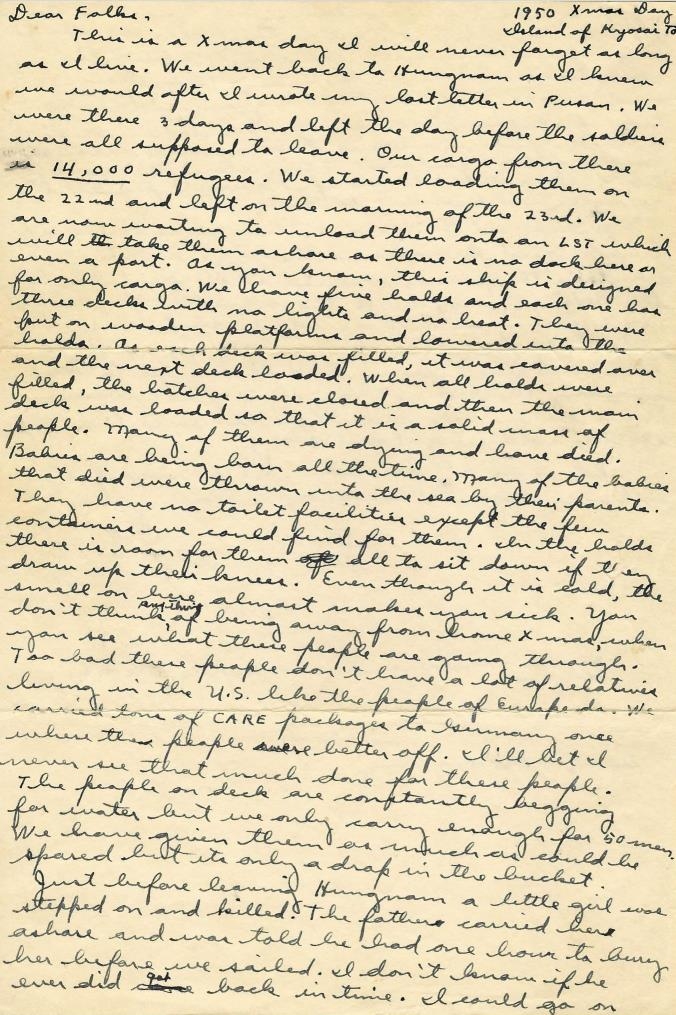 1950 Xmas Day
Dear Folks. Island of Kyosai To
This is a Xmas day I will never forget as long
as I live. We went back to Hungnam as I knew
we would after I wrote my last letter in Pusan. We
were there 3 days and left the day before the soldiers
were all supposed to leave. Our cargo from there
is 14,000 refugees. We started loading them on
the 22nd and left on the morning of the 23rd. We
are now waiting to unload them onto an LST which
will take them ashore as there is no dock here or
even a port. As you know, this ship is designed
for only cargo. We have five holds and each one has
three decks with no lights and no heat. They were
put on wooden platforms and lowered into the
holds. As each deck was filled, it was covered over
and the next deck loaded. When all holds were
filled, the hatches were closed and then the main
deck was loaded so that it is a solid mass of
people. Many of them are dying and have died.
Babies are being born all the time. Many of the babies
that died were thrown into the sea by their parents.
They have no toilet facilities except the few
containers we could find for them. In the holds
there is room for them all to sit down if they
draw up their knees. Even though it is cold, the
smell on here almost makes you sick. You
don't think anything of being away from home Xmas, when
you see what these people are going through.
Too bad these people don't have a lot of relatives
living in the U.S. like the people of Europe do. We
carried tons of CARE packages to Germany once
where the people were better off. I'll bet I
never see that much done for these people.
The people on deck are constantly begging
for water but we only carry enough for 50 men.
We have given them as much as could be
spared but its only a drop in the bucket.
Just before leaving Hungnam a little girl was
stepped on and killed. The father carried her
ashore and was told he had one hour to bury
her before we sailed. I don't know if he
ever did get back in time. I could go on